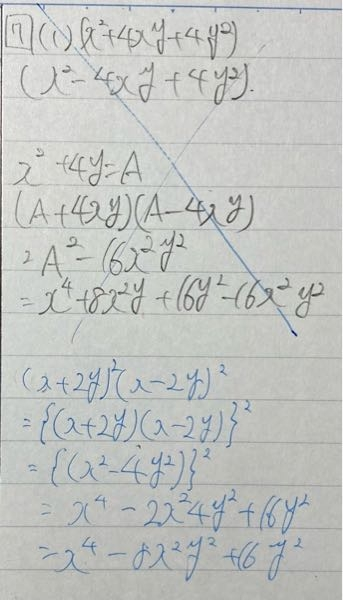 7 (1) (x²+4xy+4y²)
(x²-4xy+4y²).
x²+4y=A
(A+4xy)(A-4xy)
=A²-16x²y²
=x⁴+8x²y+16y²-16x²y²
(x+2y)²(x-2y)²
={(x+2y)(x-2y)}²
={(x²-4y²)}²
=x⁴-2x²4y²+16y²
=x⁴-8x²y²+16y²